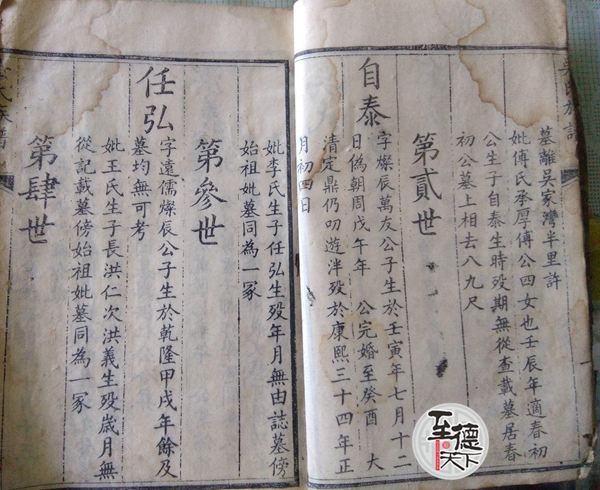 吳氏族譜
墓離吳家灣半里許
妣傅氏李厚傅公四女也壬辰年適春初
公生子自泰生時歿期無從查載墓居春
初公墓上相去八九尺
第貳世
自泰
字燦辰萬友公子生於壬寅年七月十二
日偽朝周戊午年 公完婚至癸酉 大
清定鼎仍叨遊泮歿於康熙三十四年正
月初四日
妣李氏生子任弘生歿年月無由誌墓傍
始祖妣墓同為一冢
第參世
任弘
字遠儒燦辰公子生於乾隆甲戌年餘及
墓均無可考
妣王氏生子長洪仁次洪義生歿歲月無
從記載墓傍始祖妣墓同為一冢
第肆世
氏族譜
至德天下